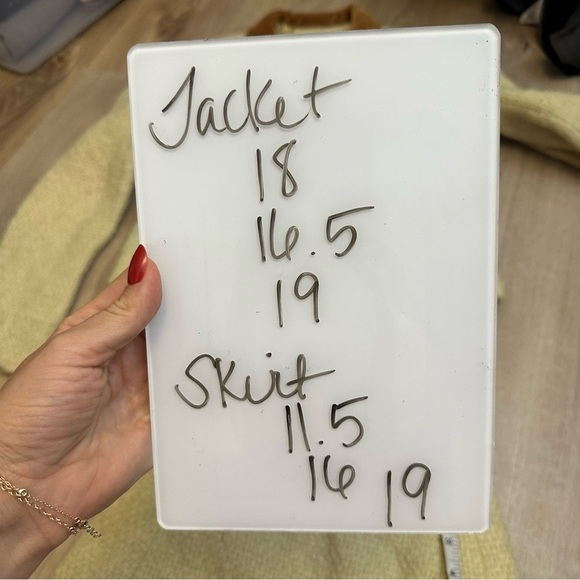 Jacket
18
16.5
19
Skirt
11.5
16 19